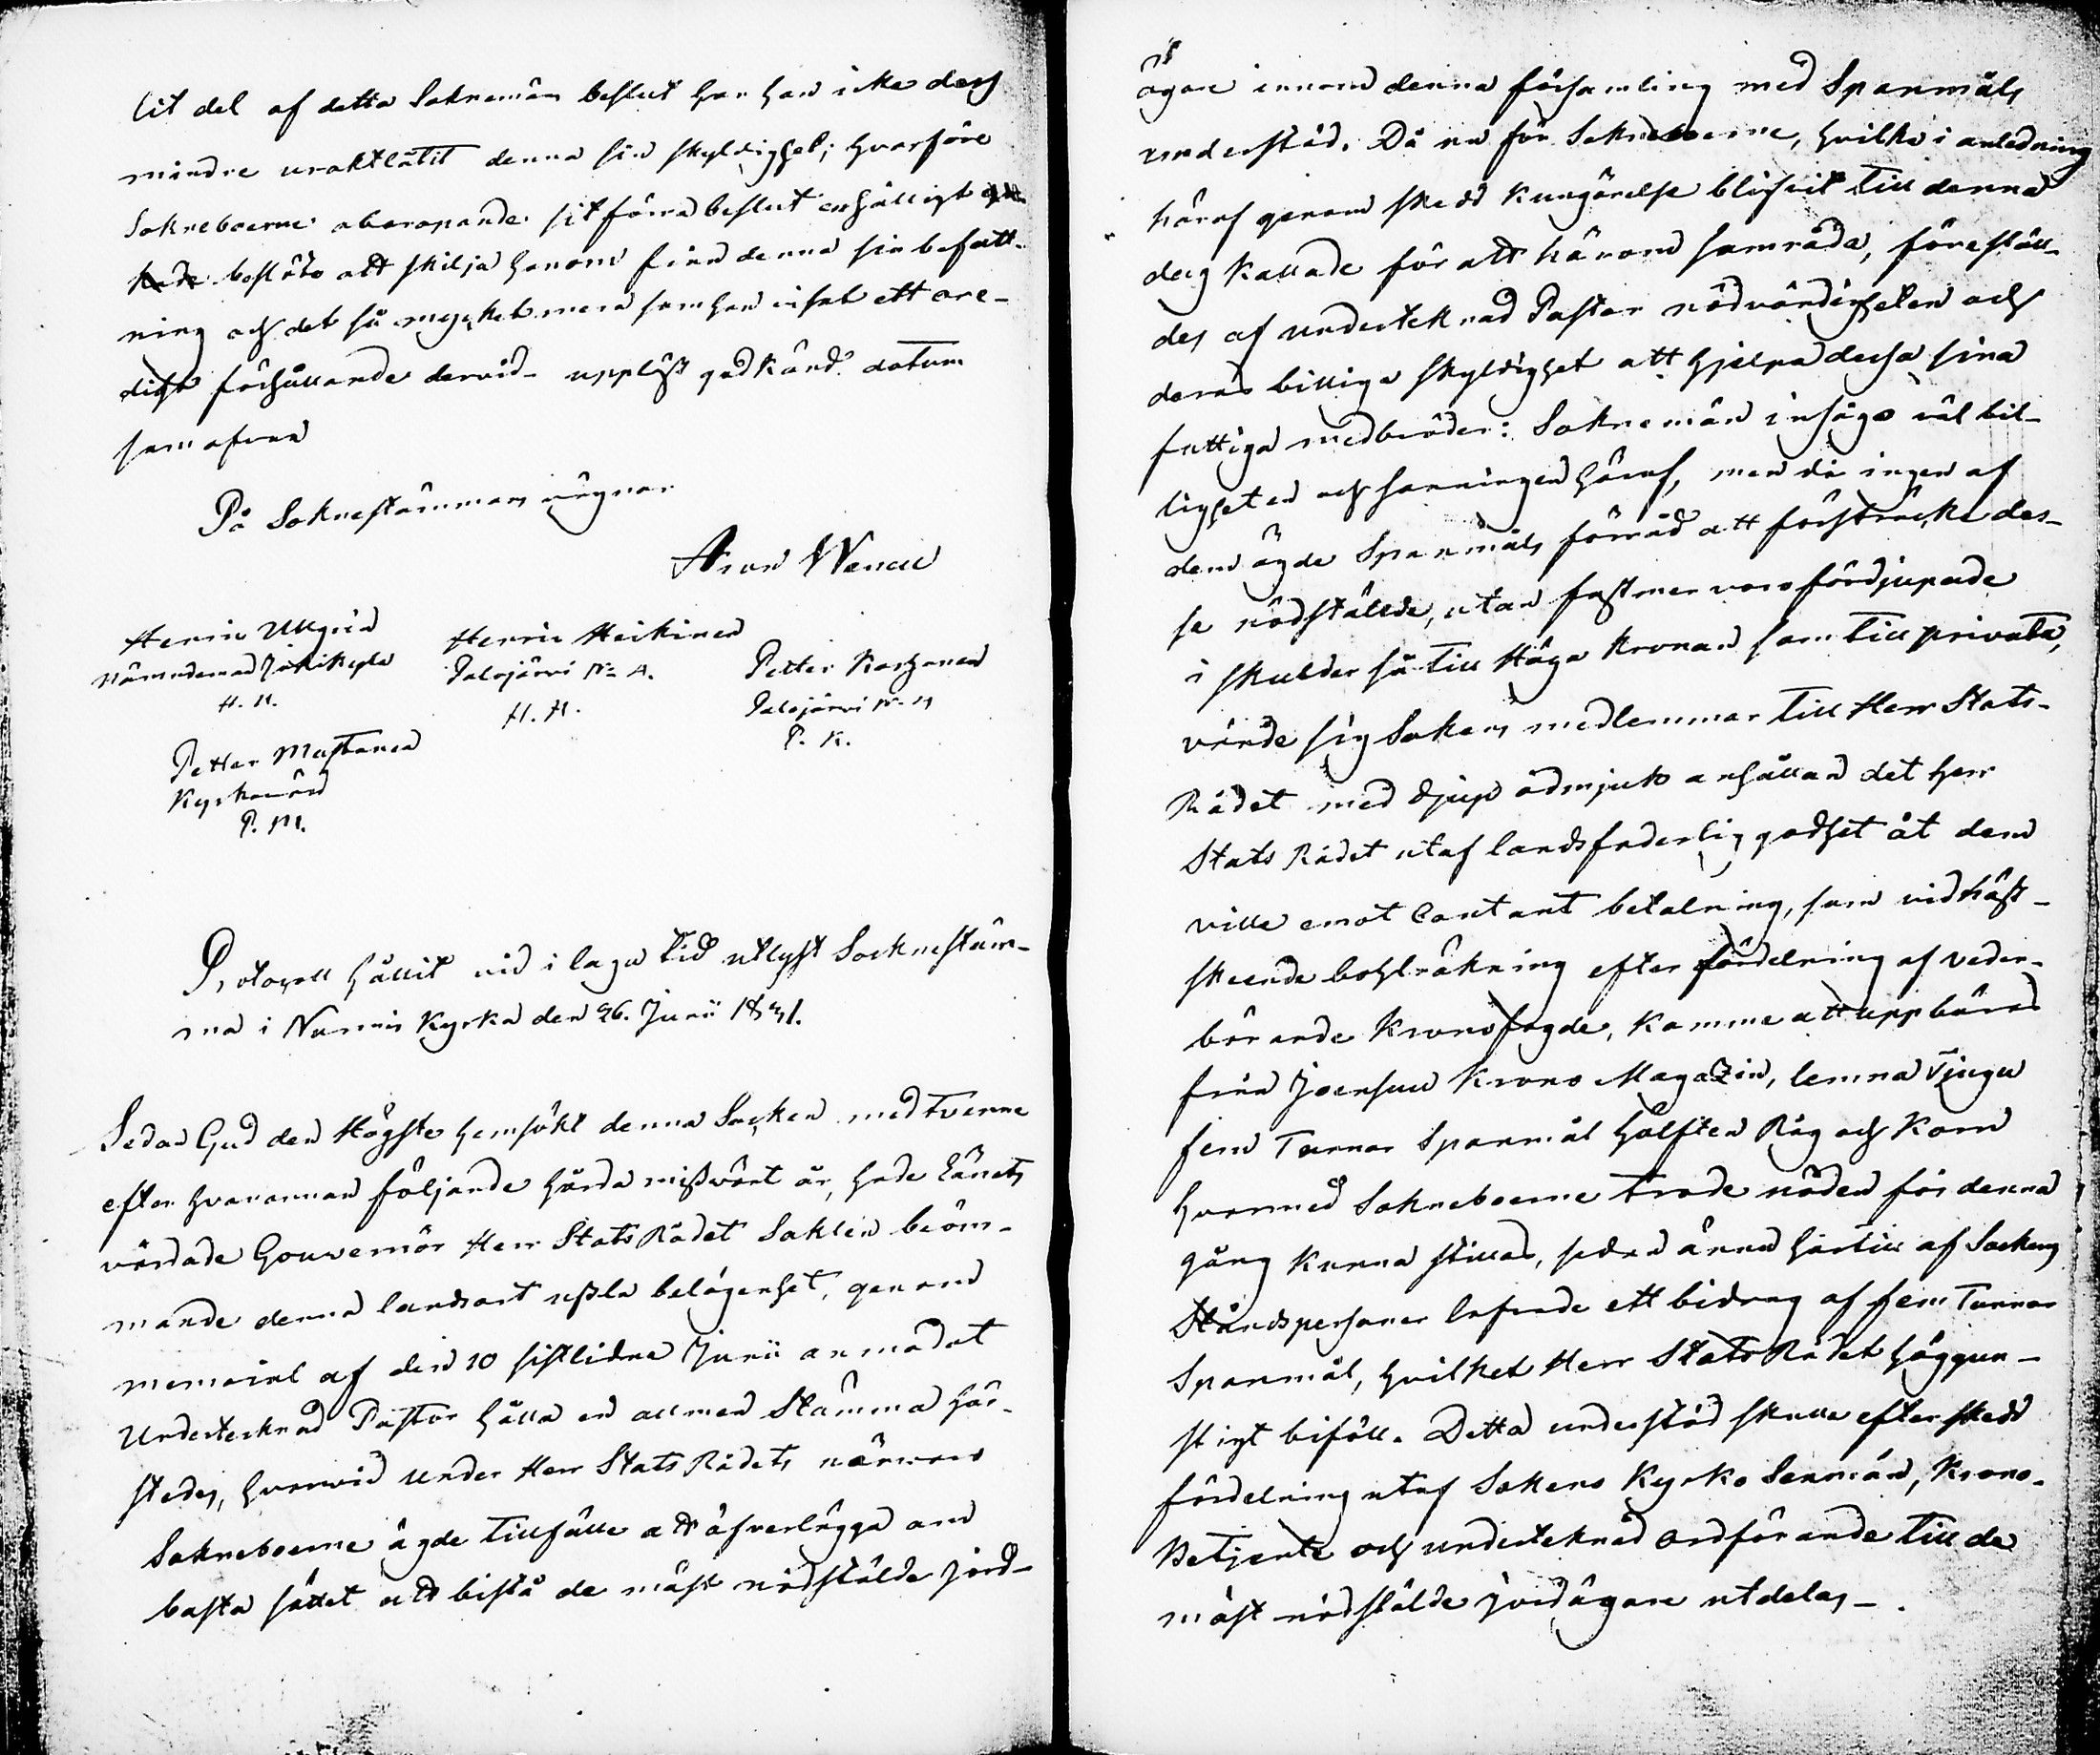 lit del af detta Soknemäns beslut har han icke dess
mindre uraktlåtit denna sin skyldighet; hvarföre
Sokneboerne åberopande sit förra beslut enhälligt
beslöto att skilja honom från denna sin befatt-
ning och det så mycket mera som han visat ett ore-
digt förhållande dervid - uppläst godkänd datum
som ofvan
På Soknestämmans vägnar
Aron Wenell
Henric Ullgrèn
Nämndeman Jokikylä
H. U.
Henric Heikinen
Palojärvi No 4.
H. H.
Petter Korhonen
Palojärvi No 11
P. K.
Petter Mustonen
Kyrkovärd
P. M.
Protocoll hållit vid i laga tid utlyst Socknestäm-
ma i Nurmis Kyrka den 26. Junii 1831.
Sedan Gud den Högste hemsökt denna Socken med tvenne
efter hvarannan följande hårda misswäxt år, hade Länets
vördade Gouvernör Herr StatsRådet Saklèn beöm-
mande denna landsort usla belägenhet, genom
memorial af den 10 sistlidne Junii anmodat
Undertecknad Pastor hålla en allmen Stämma här-
stedes, hvarvid under Herr StatsRådets närvaro
Sokneboerne ägde tillfälle att öfverlägga om
basta sättet att bistå de mäst nödstälde jord-
ägare innom denna församling med Spanmåls
understöd. Då nu för Sokneboerne, hvilka i anledning
häraf genom skedd kungörelse blifvit till denna
dag kallade för att härom samråda, föreställ-
des af underteknad Pastor nödvändigheten och
deras billiga skyldighet att hjelpa dessa sina
fattiga medbröder: Soknemän insågo väl bil-
ligheten och sanningen häraf, men då ingen af
dem ägde Spanmåls förråd att försträcka des-
sa nödstälde, utan fastmer voro fördjupade
i skulder så till Höga Kronan som till privata,
vände sig Sokens medlemmar till Herr Stats-
Rådet med djup ödmjuk anhållan det Herr
StatsRådet utaf landsfaderlig godhet åt dem
ville emot Contant betalning, som vid höst-
skeende bohlräkning efter fördelning af veder-
börande Kronofogde, komme att uppbäras
från Joensuu Krono Magazin, lemna Tjugu
fem Tunnor Spanmål hälften Råg och Korn
hvarmed Sokneboerne trode nöden för denna
gång kunna stillas, sedan ännu härtill af Sockens
Ståndspersoner lofvade ett bidrag af fem Tunnor
Spanmål, hvilket Herr StatsRådet höggun-
stigt biföll. Detta understöd skulle efter skedd
fördelning utaf Sokens Kyrko Sexmän, Krono-
Betjente och underteknad ordförande till de
mäst nödstälde jordägare utdelas -.